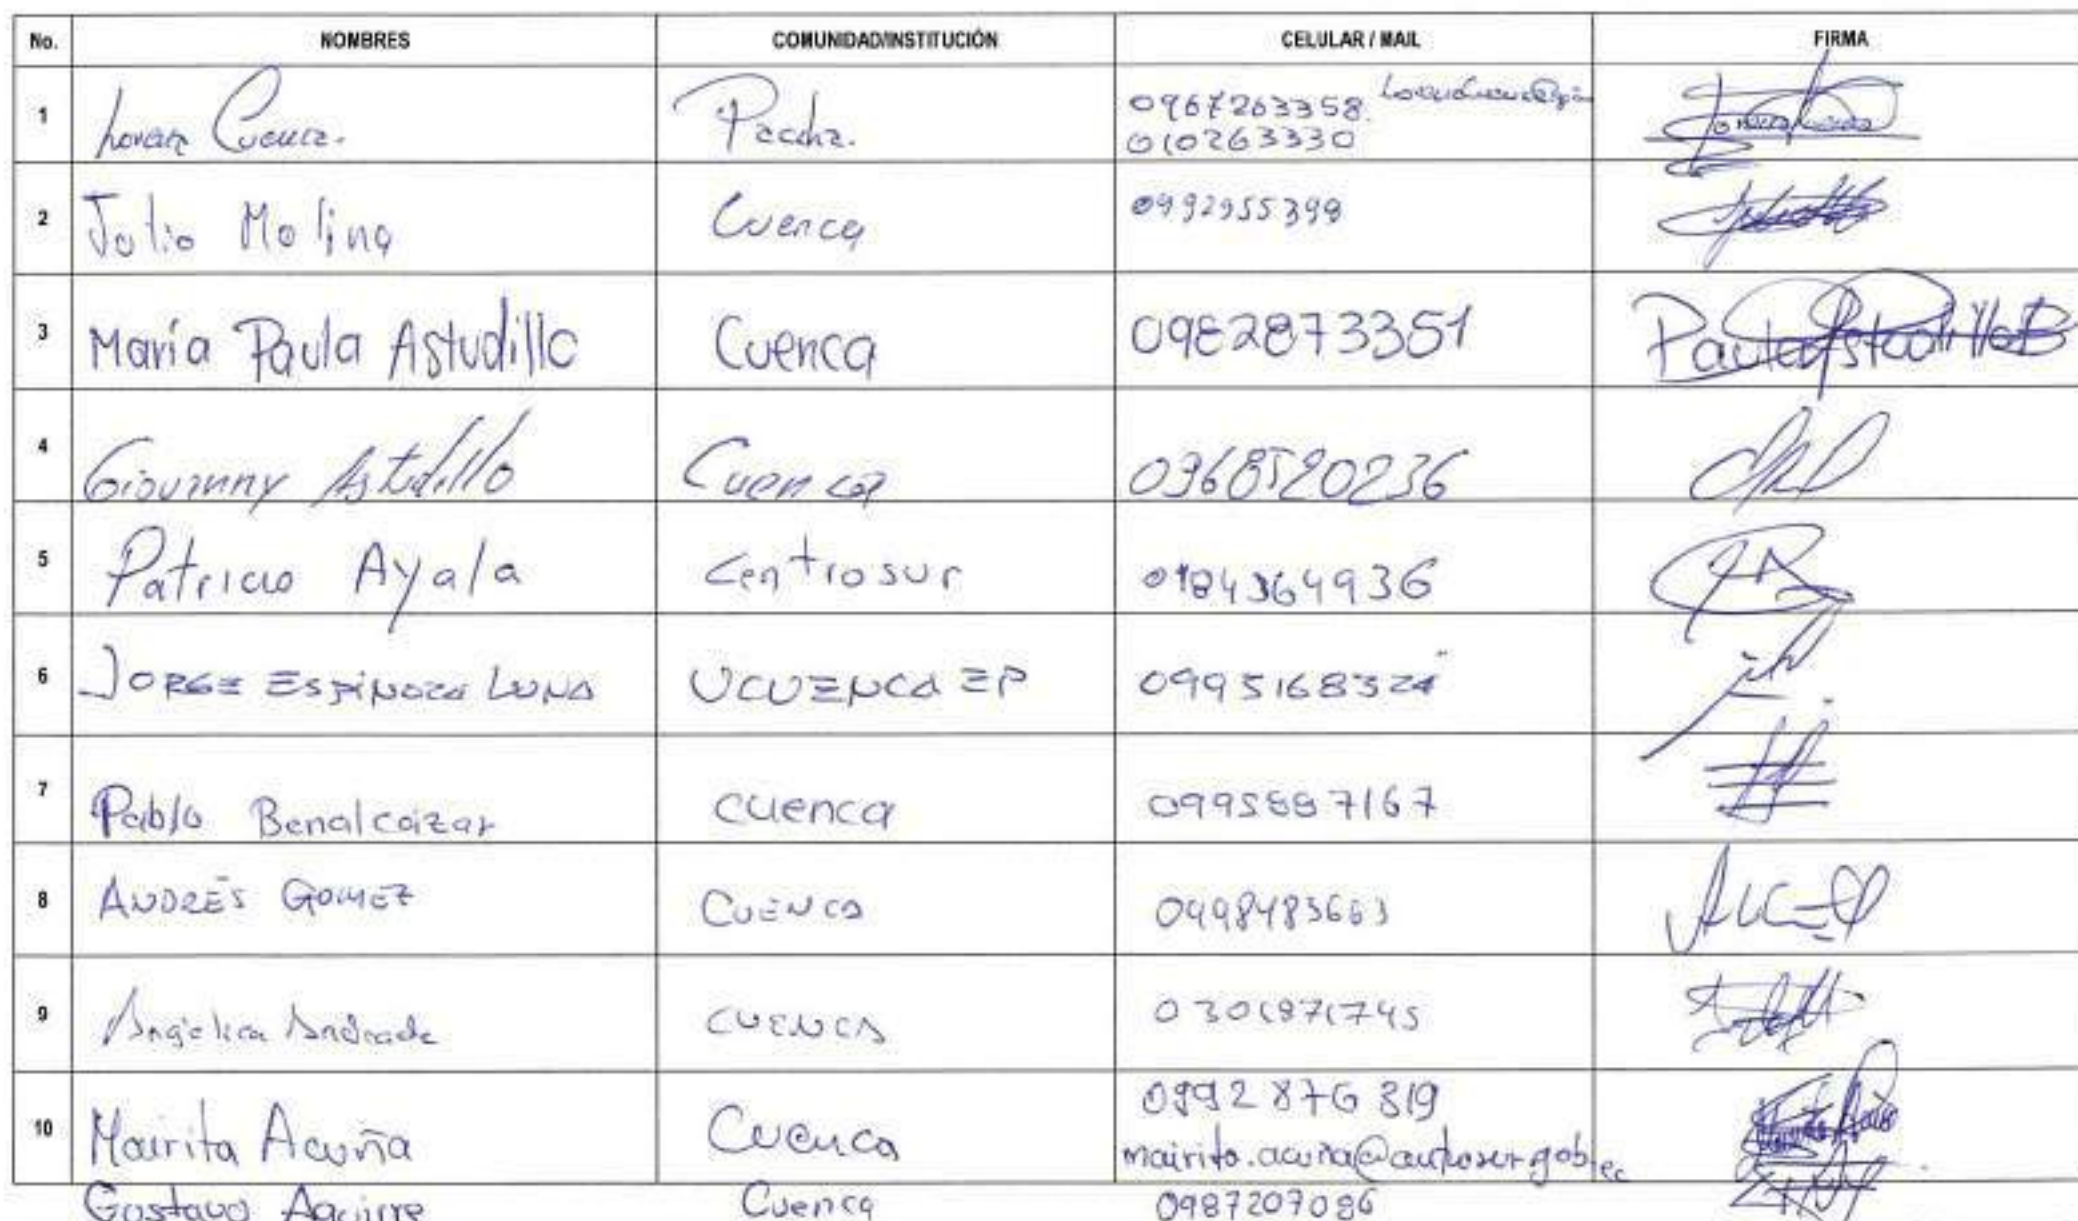 No. NOMBRES COMUNIDAD/INSTITUCIÓN CELULAR / MAIL FIRMA
1 Lorena Cuenca. Paccha. 0967263358.
010263330
2 Julio Molina Cuenca 0992955399
3 María Paula Astudillo Cuenca 0982873351 Paula Astudillo B
4 Giovanny Astudillo Cuenca 0968520236
5 Patricio Ayala Centrosur 0984364936
6 JORGE ESPINOZA LUNA UCUENCA EP 0995168324
7 Pablo Benalcázar cuenca 0995887167
8 ANDRÉS GOMEZ CUENCA 0998483663
9 Angélica Andrade CUENCA 0301871745
10 Mairita Acuña Cuenca 0992876319
mairita.acuña@centrosur.gob.ec
Gustavo Aguirre Cuenca 0987207086